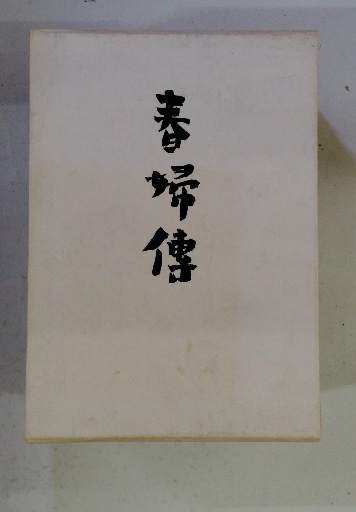 春婦傳